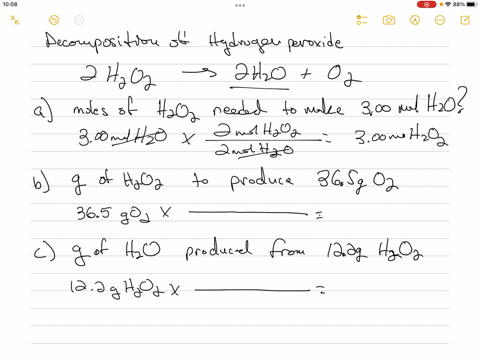 10:08 88%
Decomposition of Hydrogen peroxide
2 H2O2 → 2H2O + O2
a) moles of H2O2 needed to make 3.00 mol H2O?
3.00 mol H2O × 2 mol H2O2 / 2 mol H2O = 3.00 mol H2O2
b) g of H2O2 to produce 36.5g O2
36.5 gO2 × ———— =
c) g of H2O produced from 12.2g H2O2
12.2 g H2O2 × ———— =